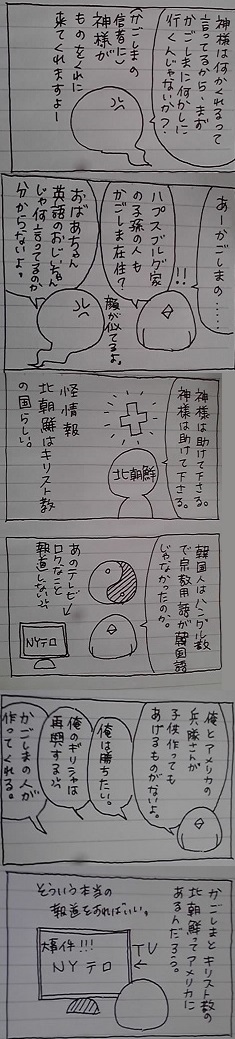 神様は何かくれるって
言ってるから、まず
かごしまに何かしに
行くんじゃないか?
(かごしまの
信者に)
神様が
ものをくれに
来てくれますよー
あーかごしまの……
!!
ハプスブルグ家
の子孫の人も
かごしま在住?
顔が似てるよ。
おばあちゃん
英語のおじいさん
じゃ何言ってるのか
分からないよ。
神様は助けて下さる。
神様は助けて下さる。
北朝鮮
怪情報
北朝鮮はキリスト教
の国らしい。
韓国人はハングル教
で宗教用語が韓国語
じゃなかったのか。
あのテレビ
ロクなこと
報道しない
NYテロ
俺とアメリカの
兵隊さんが
子供作っても
あげるものがないよ。
俺は勝ちたい。
俺のギリシャは
再興する
かごしまの人が
作ってくれる。
かごしまとキリスト教の
北朝鮮ってアメリカに
あるんだろう。
そういう本当の
報道をすればいい。
TV
大事件!!!
NYテロ